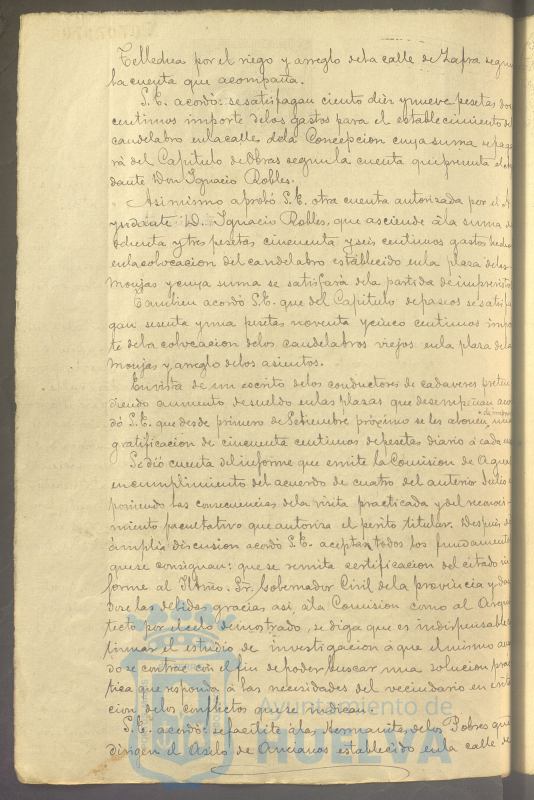 Telledua por el riego y arreglo de la calle de Zafra segun
la cuenta que acompaña.
S.E. acordó: se satisfagan ciento diez y nueve pesetas dos
centimos importe de los gastos para el establecimiento del
candelabro en la calle de la Concepcion cuya suma se paga
rá del Capitulo de Obras segun la cuenta que presenta el
dante Don Ignacio Robles.
Asimismo aprobó S.E. otra cuenta autorizada por el A
yudante D. Ignacio Robles, que asciende á la suma de
ochenta y tres pesetas cincuenta y seis centimos gastos hechos
en la colocacion del candelabro establecido en la plaza de las
Monjas y cuya suma se satisfará de la partida de imprevistos
Tambien acordó S.E. que del Capitulo de paseos se satisfa
gan sesenta y una pesetas noventa y cinco centimos impor
te de la colocacion de los candelabros viejos en la plaza de las
Monjas y arreglo de los asientos.
En vista de un escrito de los conductores de cadaveres preten
diendo aumento de sueldo en las plazas que desempeñan acor
dó S.E. que desde primero de Setiembre próximo se les abone una
gratificacion de cincuenta centimos de pesetas diario á cada uno
Se dió cuenta del informe que emite la Comision de Aguas
en cumplimiento del acuerdo de cuatro del anterior Julio
poniendo las consecuencias de la visita practicada y del reconoci-
miento facultativo que autoriza el perito titular. Despues de
ámplia discusion acordó S.E. aceptar todos los fundamentos
que se consignan: que se remita certificacion del citado in
forme al Iltmo. Sr. Gobernador Civil de la provincia y dan
dose las debidas gracias asi á la Comision como al Arqui
tecto por el celo demostrado, se diga que es indispensable
tinuar el estudio de investigacion á que el mismo acuer
do se contrae con el fin de poder buscar una solucion prac
tica que responda á las necesidades del vecindario en evita
cion de los conflictos que se indican.
S.E. acordó: se facilite á las Hermanitas de los Pobres que
dirigen el Asilo de Ancianos establecido en la calle de
Ayuntamiento de
HUELVA